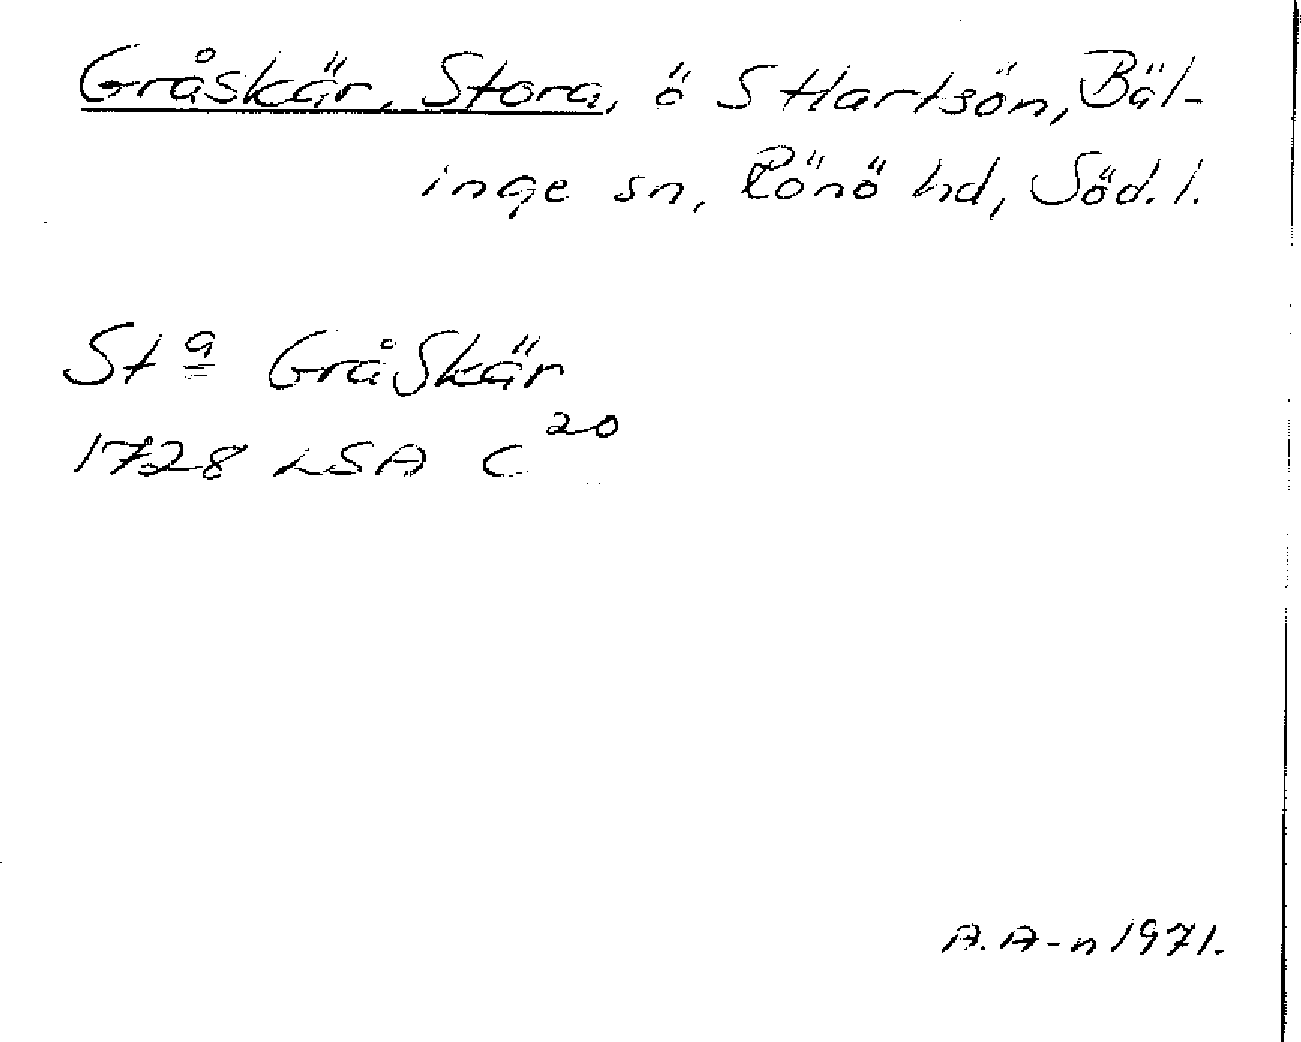 Gråskär, Stora, ö S Hartsön, Bäl-
inge sn, Rönö hd, Söd.l.
St a Grå Skär
1728 LSA C 20
A. A-n 1971.